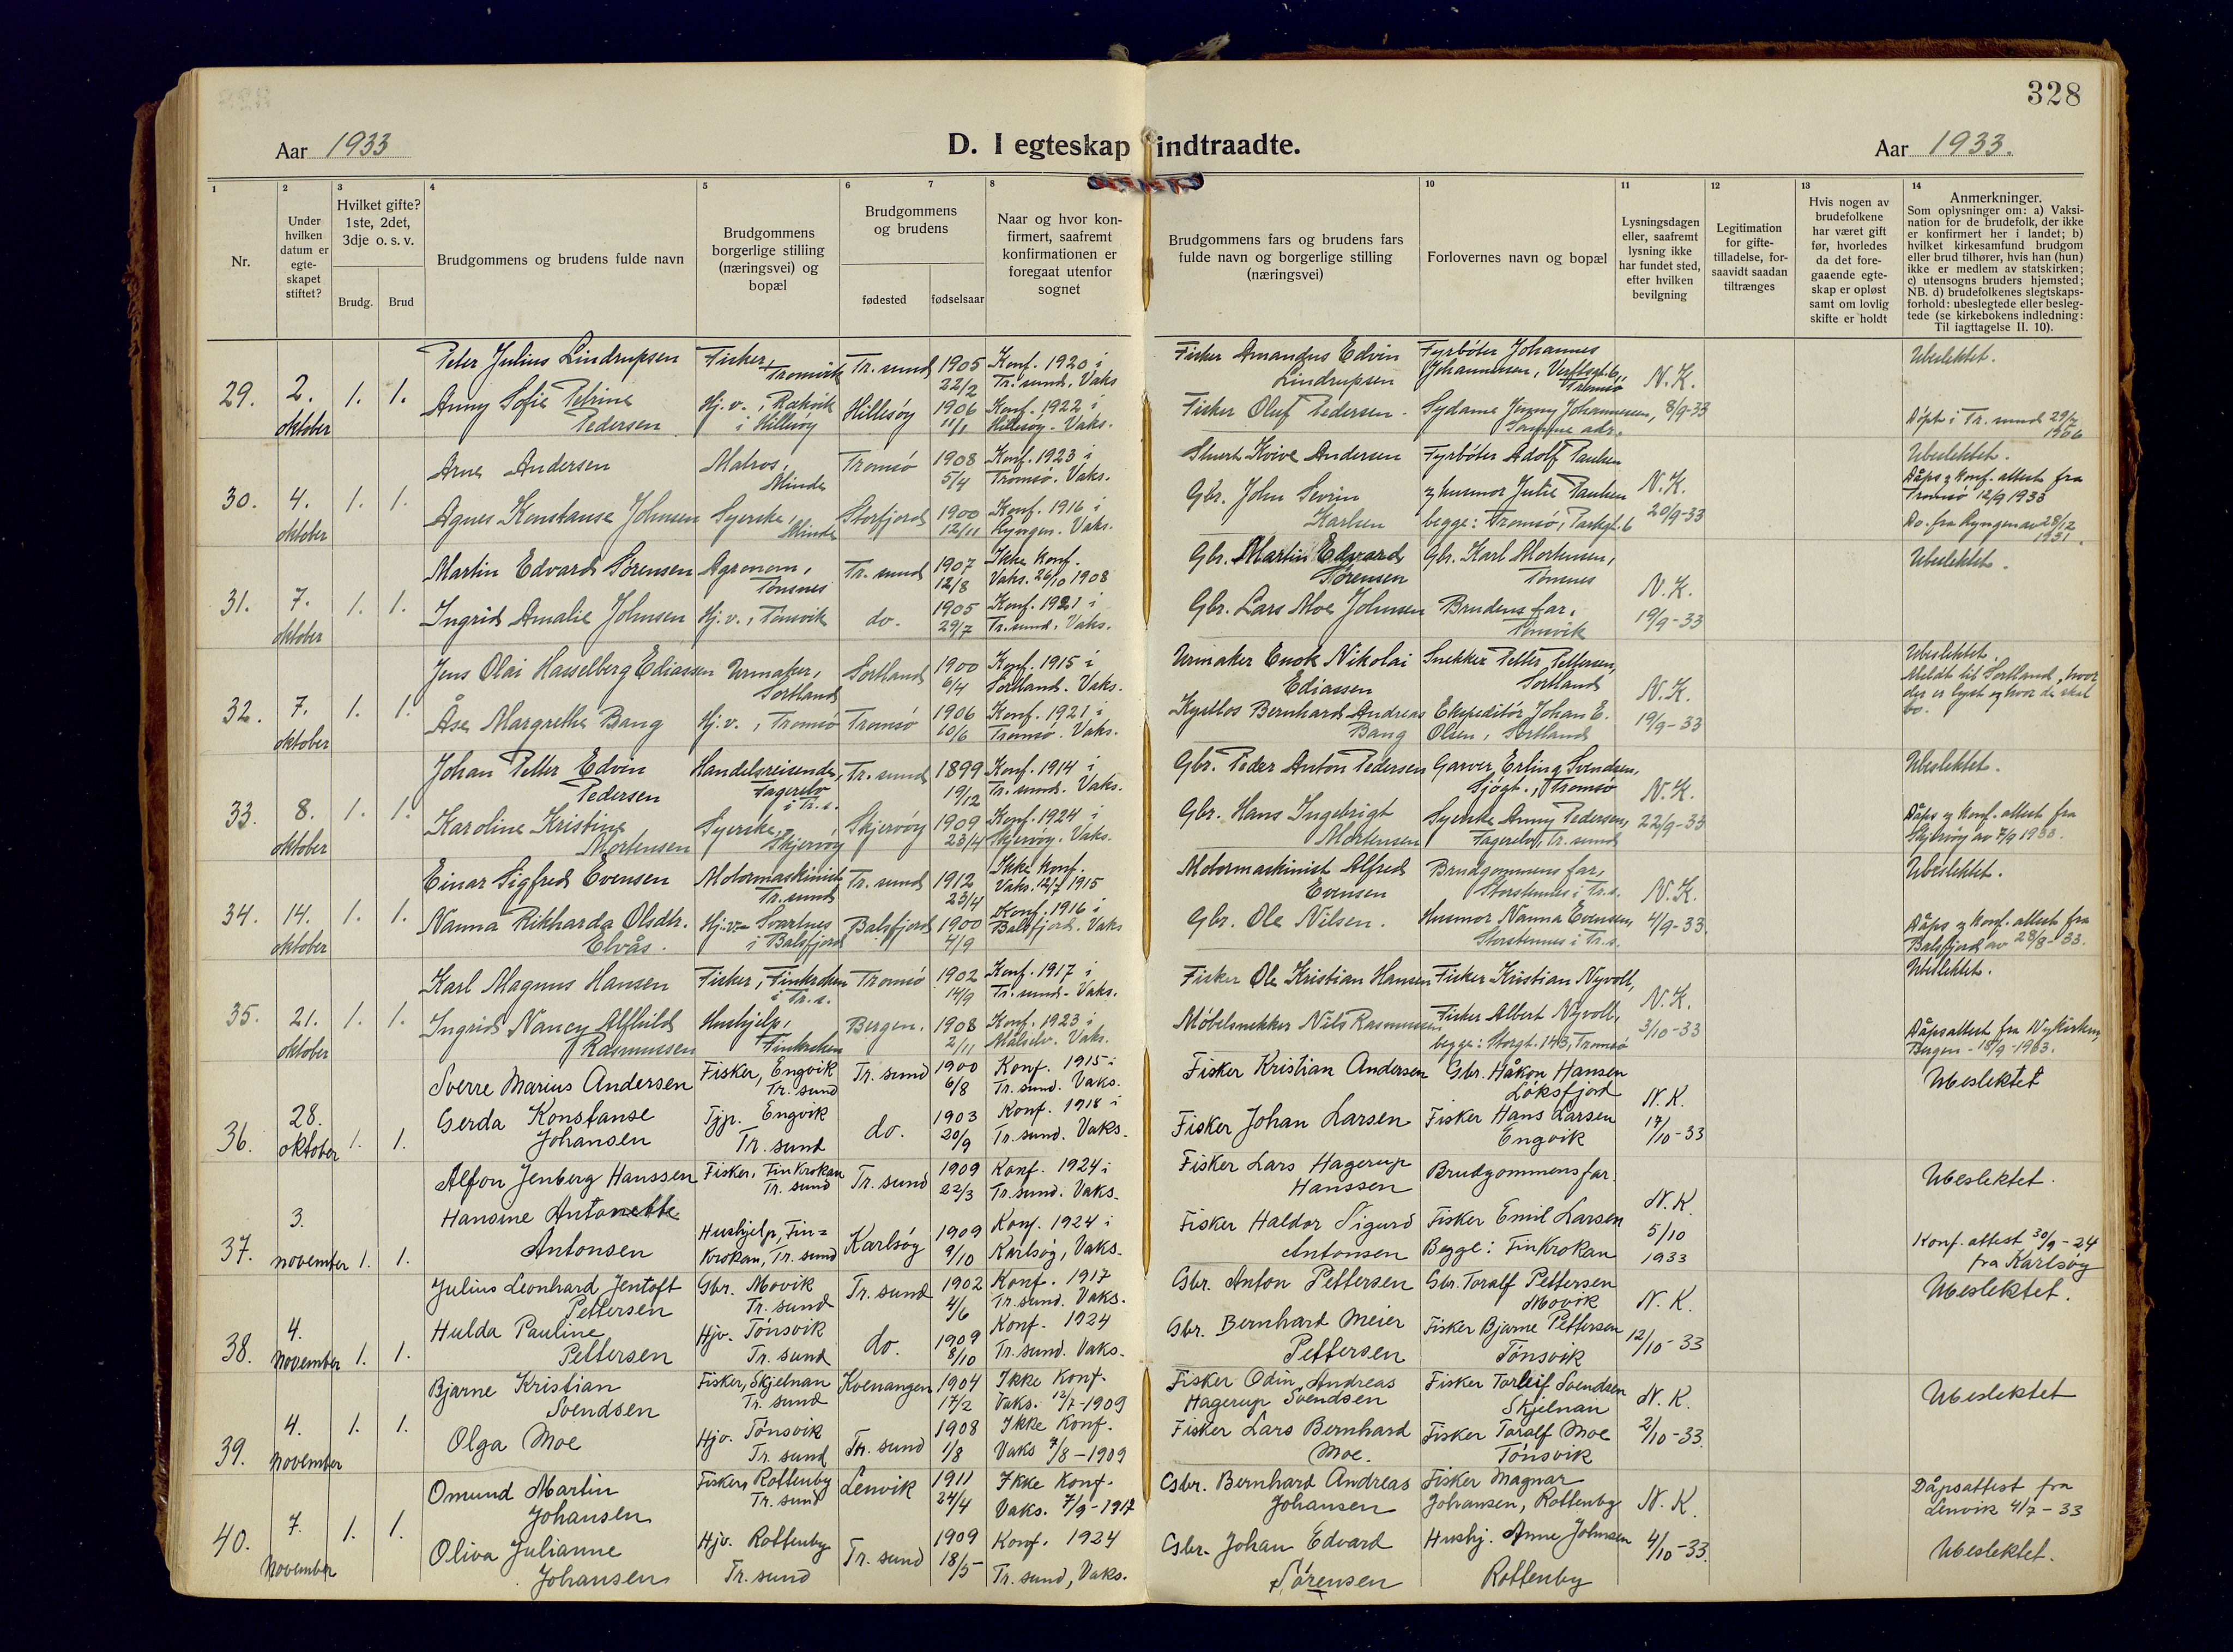 328
Aar 1933
D. I egteskap indtraadte.
Aar 1933.
1
Nr.
2
Under hvilken datum er egte-skapet stiftet?
3
Hvilket gifte? 1ste, 2det, 3dje o. s. v.
Brudg.
Brud
4
Brudgommens og brudens fulde navn
5
Brudgommens borgerlige stilling (næringsvei) og bopæl
6
7
Brudgommens og brudens
fødested
fødselsaar
8
Naar og hvor kon-firmert, saafremt konfirmationen er foregaat utenfor sognet
Brudgommens fars og brudens fars fulde navn og borgerlige stilling (næringsvei)
10
Forlovernes navn og bopæl
11
Lysningsdagen eller, saafremt lysning ikke har fundet sted, efter hvilken bevilgning
12
Legitimation for gifte-tilladelse, for-saavidt saadan tiltrænges
13
Hvis nogen av brudefolkene har været gift før, hvorledes da det fore-gaaende egte-skap er opløst samt om lovlig skifte er holdt
14
Anmerkninger.
Som oplysninger om: a) Vaksi-nation for de brudefolk, der ikke er konfirmert her i landet; b) hvilket kirkesamfund brudgom eller brud tilhører, hvis han (hun) ikke er medlem av statskirken; c) utensogns bruders hjemsted; NB. d) brudefolkenes slegtskaps-forhold: ubeslegtede eller besleg-tede (se kirkebokens indledning: Til iagttagelse II. 10).
29. 2. oktober 1. 1.
Peter Julius Lindrupsen Fisker, Tromvik Tr. sund 1905 22/2 Konf. 1920 i Tr. sund. Vaks
Fisker Amandus Edvin Lindrupsen Fyrbøter Johannes Johannesen, Verftsgt. 6, Tromsø
N. K. 8/9-33
Ubeslektet.
Anny Sofie Petrine Pedersen Hj. v., Rekvik i Hillesøy Hillesøy 1906 11/1 Konf. 1922 i Hillesøy. Vaks.
Fisker Oluf Pedersen. Sydame Jenny Johannesen, Samme adr.
Døpt i Tr. sund 29/7 1906
30. 4. oktober 1. 1.
Arne Andersen Matros, Minde Tromsø 1908 5/4 Konf. 1923 i Tromsø. Vaks.
Andersen Fyrbøter Adolf Paulsen
N. K. 20/9-33
Ubeslektet. Dåps og konf. attest fra Tromsø 12/9 1933
Agnes Konstanse Johnsen Syerske, Minde Storfjord 1900 12/11 Konf. 1916 i Lyngen. Vaks.
Gbr. John Sevrin Karlsen og husmor Julie Paulsen begge: Tromsø, Parkgt. 6
Do. fra Lyngen av 28/12 1931.
31. 7. oktober 1. 1.
Martin Edvard Sørensen Agronom, Tønsnes Tr. sund 1907 12/8 Ikke konf. Vaks. 26/10 1908
Gbr. Martin Edvard Sørensen Gbr. Karl Mortensen, Tønsnes
N. K. 19/9-33
Ubeslektet.
Ingrid Amalie Johnsen Hj. v., Tønsvik do. 1905 29/7 Konf. 1921 i Tr. sund. Vaks.
Gbr. Lars Moe Johnsen Brudens far, Tønsvik
32. 7. oktober 1. 1.
Jens Olai Hasselberg Ediassen Urmaker, Sortland Sortland 1900 6/4 Konf. 1915 i Sortland. Vaks.
Urmaker Enok Nikolai Ediassen Snekker Petter Pettersen, Sortland
N. K. 19/9-33
Ubeslektet. Meldt til Sortland, hvor der er lyst og hvor de skal bo.
Åse Margrethe Bang Hj. v., Tromsø Tromsø 1906 10/6 Konf. 1921 i Tromsø. Vaks.
Bernhard Andreas Bang Ekspeditør Johan E. Olsen, Sortland
33. 8. oktober 1. 1.
Johan Petter Edvin Pedersen Handelsreisende, Fagerelv i Tr. s. Tr. sund 1899 19/12 Konf. 1914 i Tr. sund. Vaks.
Gbr. Peder Anton Pedersen Garver Erling Svendsen, Sjøgt., Tromsø
N. K. 22/9-33
Ubeslektet.
Karoline Kristine Mortensen Syerske, Skjervøy Skjervøy 1909 23/4 Konf. 1924 i Skjervøy. Vaks.
Gbr. Hans Ingebrigt Mortensen Syerske Anny Pedersen, Fagerelv, Tr. sund
Dåps og konf. attest fra Skjervøy av 7/9 1933.
34. 14. oktober 1. 1.
Einar Sigfred Evensen Motormaskinist Tr. sund Tr. sund 1912 23/4 Ikke konf. Vaks. 12/7 1915
Motormaskinist Alfred Evensen Brudgommens far, Storstennes i Tr. s.
N. K. 4/9-33
Ubeslektet.
Nanna Rikharda Olsdtr. Elvås. Hj. v. Svartnes i Balsfjord Balsfjord 1900 4/9 Konf. 1916 i Balsfjord. Vaks
Gbr. Ole Nilsen. Husmor Nanna Evensen, Storstennes i Tr. s.
Dåps og konf. attest fra Balsfjord av 28/8-33.
35. 21. oktober 1. 1.
Karl Magnus Hansen Fisker, Finkroken i Tr. s. Tromsø 1902 14/9 Konf. 1917 i Tr. sund. Vaks.
Fisker Ole Kristian Hansen Fisker Kristian Nyvoll,
N. K. 3/10-33
Ubeslektet.
Ingrid Nancy Alfhild Rasmussen Hushjelp, Finkroken Bergen. 1908 2/11 Konf. 1923 i Målselv. Vaks.
Møbelsnekker Nils Rasmussen Fisker Albert Nyvoll, begge: Storgt. 143, Tromsø
Dåpsattest fra Nykirken, Bergen - 18/9-1933.
36. 28. oktober 1. 1.
Sverre Marius Andersen Fisker, Engvik Tr. sund Tr. sund 1900 6/8 Konf. 1915 i Tr. sund. Vaks.
Fisker Kristian Andersen Gbr. Håkon Hansen Løksfjord
N. K. 17/10-33
Ubeslektet
Gerda Konstanse Johansen Tjp. Engvik Tr. sund do. 1903 20/9 Konf. 1918 i Tr. sund. Vaks.
Fisker Johan Larsen Fisker Hans Larsen Engvik
37. 3. november 1. 1.
Alfon Jenberg Hanssen Fisker, Finkrokan Tr. sund Tr. sund 1909 22/3 Konf. 1924 i Tr. sund. Vaks.
Fisker Lars Hagerup Hanssen Brudgommens far.
N. K. 5/10 1933
Ubeslektet.
Hansine Antonette Antonsen Hushjelp, Fin=krokan, Tr. sund Karlsøy 1909 9/10 Konf. 1924 i Karlsøy, Vaks.
Fisker Haldor Sigurd Antonsen Fisker Emil Larsen Begge: Finkrokan
Konf. attest 30/9-24 fra Karlsøy
38. 4. november 1. 1.
Julius Leonhard Jentoft Pettersen Gbr. Movik Tr. sund Tr. sund 1902 4/6 Konf. 1917 Tr. sund. Vaks.
Gbr. Anton Pettersen Gbr. Toralf Pettersen Movik
N. K. 12/10-33
Ubeslektet.
Hulda Pauline Pettersen Hjv. Tønsvik Tr. sund do. 1909 8/10 Konf. 1924 Tr. sund. Vaks.
Gbr. Bernhard Meier Pettersen Fisker Bjarne Pettersen Tønsvik
39. 4. november 1. 1.
Bjarne Kristian Svendsen Fisker, Skjelnan Tr. sund Kvenangen 1904 17/2 Ikke konf. Vaks. 12/7-1909
Fisker Odin Andreas Hagerup Svendsen Fisker Torleif Svendsen Skjelnan
N. K. 2/10-33.
Ubeslektet
Olga Moe Hjv. Tønsvik Tr. sund Tr. sund 1908 1/8 Ikke konf. Vaks 7/8-1909
Fisker Lars Bernhard Moe. Fisker Toralf Moe Tønsvik
40. 7. november 1. 1.
Omund Martin Johansen Fisker, Rottenby Tr. sund Lenvik 1911 24/4 Ikke konf. Vaks. 7/9-1912
Gsbr. Bernhard Andreas Johansen Fisker Magnar Johansen, Rottenby
N. K. 4/10-33.
Dåpsattest fra Lenvik 4/7-33
Oliva Julianne Johansen Hjv. Rottenby Tr. sund Tr. sund 1909 18/5 Konf. 1924 Tr. sund, Vaks.
Gsbr. Johan Edvard Sørensen Hushj. Anne Johnsen Rottenby
Ubeslektet.